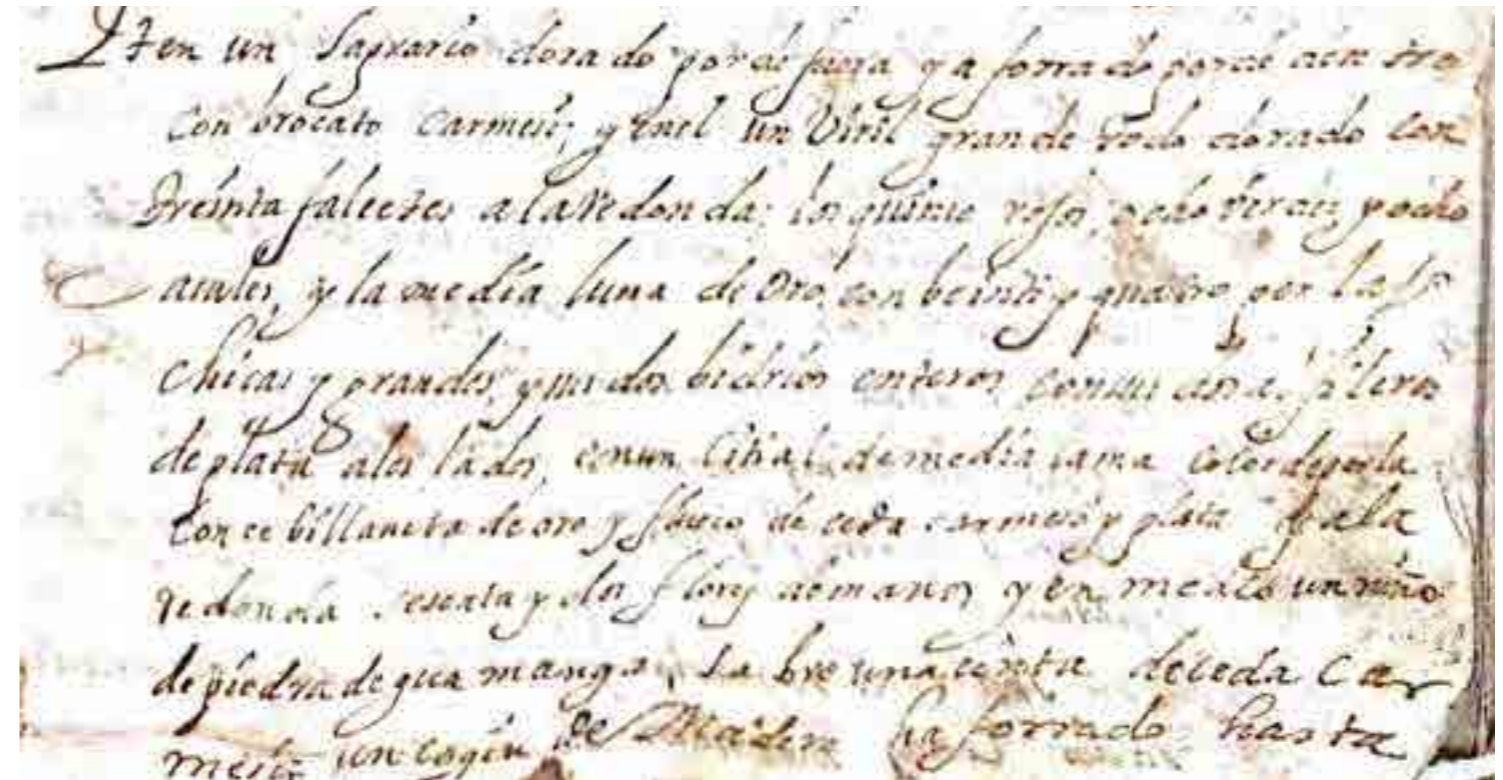 Iten un Sagrario dorado por de fuera y a forrado por de dentro
Con brocato Carmesi, y enel un Viril grande todo dorado con
treinta falectes a la redonda; los quinse rojos, ocho verdes y ocho
asules, y la media luna de Oro, con beinti y quatro perlas
Chicas y grandes, y sus dos bidrios enteros con sus asas,
de plata a los lados, con un de media color de perla
Con de oro y flueco de ceda carmesi y plata a la
redonda y dos flores de mano, y en medio un niño
de piedra de gua manga, una cinta de ceda Car
mesi, un cogin de Madera a forrado hasta